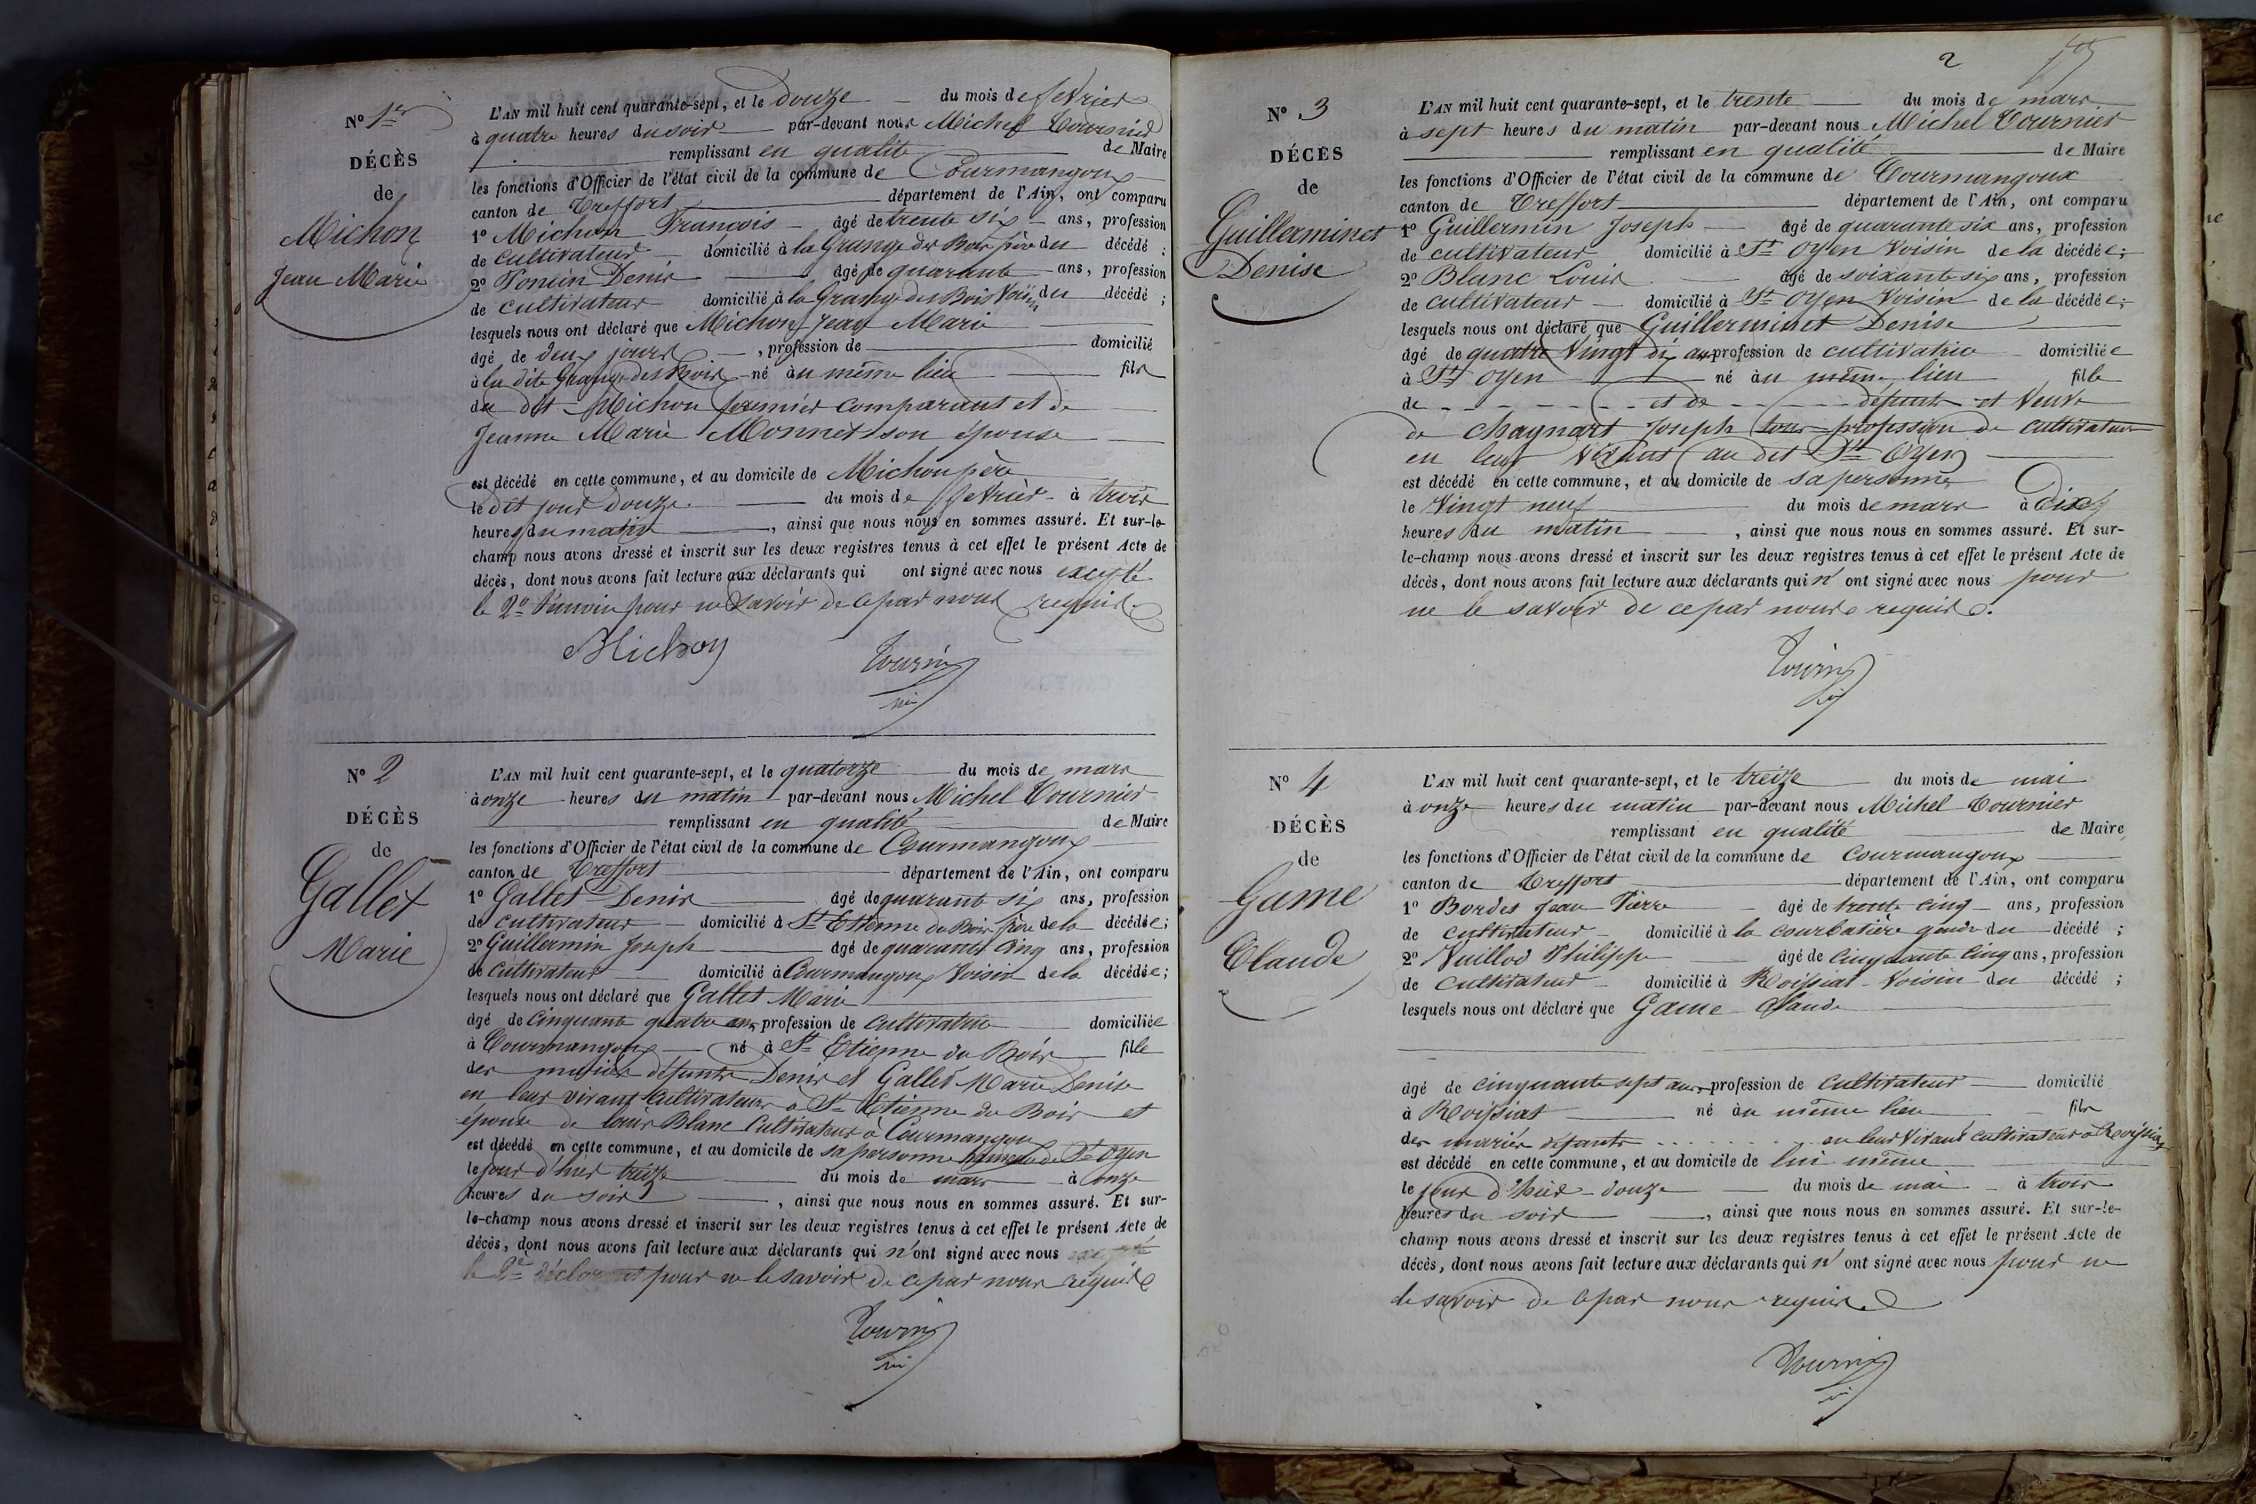 N° 1er
DÉCÈS
de
Michon
Jean Marie
L'AN mil huit cent quarante-sept, et le douze du mois de fevrier
à quatre heures du soir par-devant nous Michel Tournier
remplissant en qualité de Maire
les fonctions d'Officier de l'état civil de la commune de Courmangoux
canton de Treffort département de l'Ain, ont comparu
1° Michon François âgé de trente six ans, profession
de cultivateur domicilié à la Grange des Bois père du décédé ;
2° Poncin Denis âgé de quarante ans, profession
de cultivateur domicilié à la Grange des Bois Voisin du décédé ;
lesquels nous ont déclaré que Michon Jean Marie
âgé de deux jours , profession de domicilié
à la dite Grange des Bois né au même lieu fils
du dit Michon premier comparant et de
Jeanne Marie Monnet son épouse
est décédé en cette commune, et au domicile de Michon père
le dit jour douze du mois de fevrier à trois
heures du matin , ainsi que nous nous en sommes assuré. Et sur-le-
champ nous avons dressé et inscrit sur les deux registres tenus à cet effet le présent Acte de
décès, dont nous avons fait lecture aux déclarants qui ont signé avec nous excepté
le 2e témoin pour ne savoir de ce par nous requis.
Michon Tournier
N° 2
DÉCÈS
de
Gallet
Marie
L'AN mil huit cent quarante-sept, et le quatorze du mois de mars
à onze heures du matin par-devant nous Michel Tournier
remplissant en qualité de Maire
les fonctions d'Officier de l'état civil de la commune de Courmangoux
canton de Treffort département de l'Ain, ont comparu
1° Gallet Denis âgé de quarante six ans, profession
de cultivateur domicilié à St Etienne du Bois frère de la décédée ;
2° Guillermin Joseph âgé de quarante cinq ans, profession
de cultivateur domicilié à Courmangoux Voisin de la décédée ;
lesquels nous ont déclaré que Gallet Marie
âgé de cinquante quatre ans, profession de cultivatrice domiciliée
à Courmangoux né à St Etienne du Bois fille
des mariés défunts Denis et Gallet Marie Denise
en leur vivant cultivateurs à St Etienne du Bois et
épouse de Louis Blanc Cultivateur à Courmangoux
est décédé en cette commune, et au domicile de sa personne hameau de St Oyen
le jour d'hier treize du mois de mars à onze
heures du soir , ainsi que nous nous en sommes assuré. Et sur-
le-champ nous avons dressé et inscrit sur les deux registres tenus à cet effet le présent Acte de
décès, dont nous avons fait lecture aux déclarants qui n'ont signé avec nous
pour ne le savoir de ce par nous requis
Tournier
2
N° 3
DÉCÈS
de
Guillerminet
Denise
L'AN mil huit cent quarante-sept, et le trente du mois de mars
à sept heures du matin par-devant nous Michel Tournier
remplissant en qualité de Maire
les fonctions d'Officier de l'état civil de la commune de Courmangoux
canton de Treffort département de l'Ain, ont comparu
1° Guillermin Joseph âgé de quarante six ans, profession
de cultivateur domicilié à St Oyen Voisin de la décédée ;
2° Blanc Louis âgé de soixante six ans, profession
de cultivateur domicilié à St Oyen Voisin de la décédée ;
lesquels nous ont déclaré que Guillerminet Denise
âgé de quatre vingt dix ans profession de cultivatrice domiciliée
à St Oyen né au même lieu fille
de - - - - - et de - - - - - défunts et Veuve
de Chagnart Joseph tous profession de cultivateur
en leur vivant au dit St Oyen
est décédé en cette commune, et au domicile de sa personne
le Vingt neuf du mois de mars à Dix
heures du matin , ainsi que nous nous en sommes assuré. Et sur-
le-champ nous avons dressé et inscrit sur les deux registres tenus à cet effet le présent Acte de
décès, dont nous avons fait lecture aux déclarants qui n'ont signé avec nous pour
ne le savoir de ce par nous requis.
Tournier
N° 4
DÉCÈS
de
Game
Claude
L'AN mil huit cent quarante-sept, et le treize du mois de mai
à onze heures du matin par-devant nous Michel Tournier
remplissant en qualité de Maire
les fonctions d'Officier de l'état civil de la commune de Courmangoux
canton de Treffort département de l'Ain, ont comparu
1° Bordes Jean Pierre âgé de trente cinq ans, profession
de cultivateur domicilié à la courbatière gendre du décédé ;
2° Nuillod Philippe âgé de cinquante cinq ans, profession
de cultivateur domicilié à Roissiat Voisin du décédé ;
lesquels nous ont déclaré que Game Claude
âgé de cinquante sept ans, profession de cultivateur domicilié
à Roissiat né au même lieu fils
des mariés défunts . . . . . . . en leur Vivant cultivateurs à Roissiat
est décédé en cette commune, et au domicile de lui même
le jour d'hier douze du mois de mai à trois
heures du soir , ainsi que nous nous en sommes assuré. Et sur-le-
champ nous avons dressé et inscrit sur les deux registres tenus à cet effet le présent Acte de
décès, dont nous avons fait lecture aux déclarants qui n'ont signé avec nous pour ne
le savoir de ce par nous requis.
Tournier